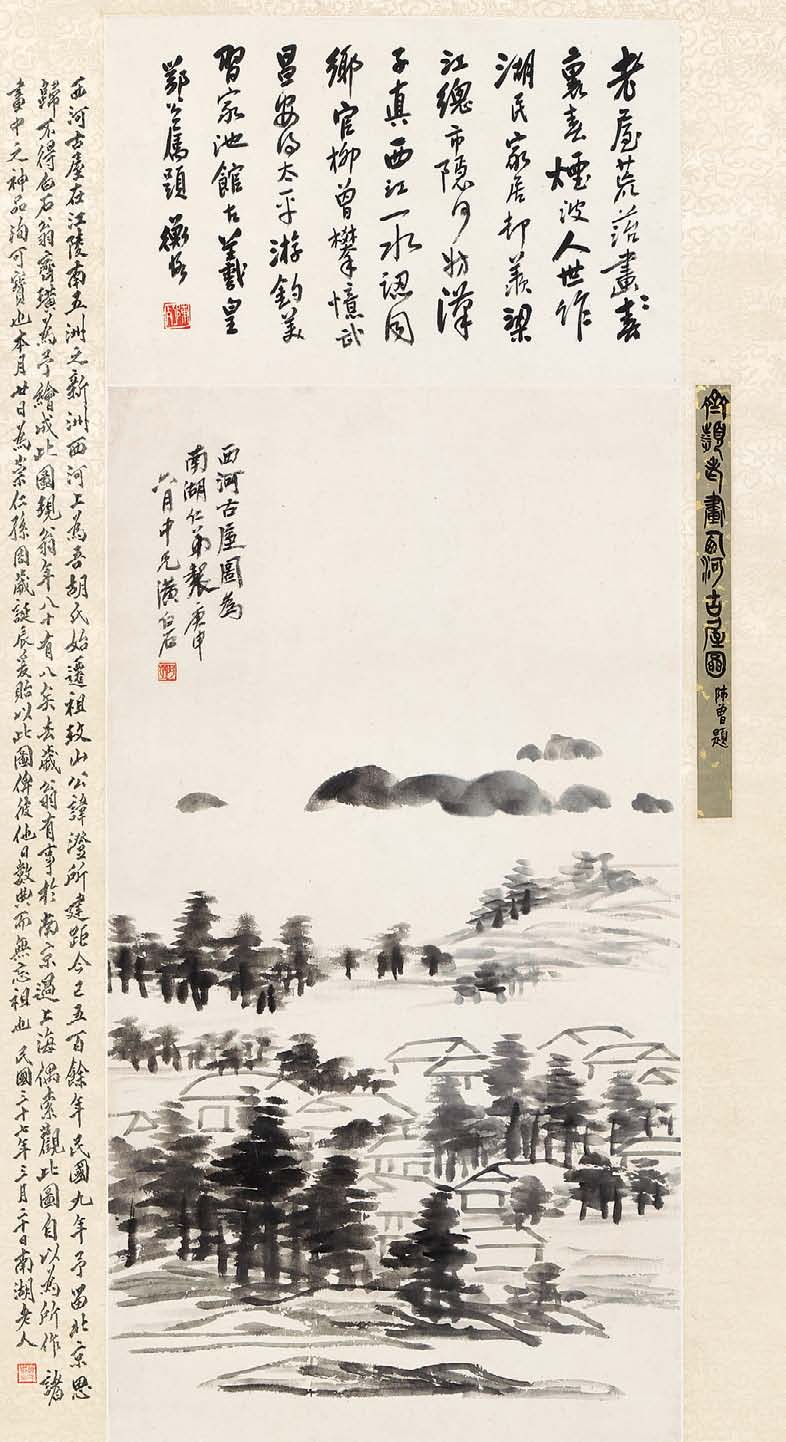 老屋荒茫畫
裏春煙波人世作
湖民家居却羨梁
江總市隱何妨漢
子真西江一水認同
鄉官柳曾攀憶武
昌安得太平游釣美
習家池館古羲皇
鄂公屬題 衡恪
西河古屋圖為
南湖仁弟製庚申
六月中兄璜白石
齊瀕生畫西河古屋圖 陳曾題
西河古屋在江陵南五洲之新洲西河上為吾胡氏始遷祖鼓山公諱澄所建距今已五百餘年民國九年予留北京思
歸不得白石翁齊璜為予繪成此圖現翁年八十有八矣去歲翁有事於南京過上海偶索觀此圖自以為所作諸
畫中之神品洵可寶也本月廿日為崇仁孫周歲誕辰爰貽以此圖俾後他日數典而無忘祖也 民國三十七年三月二十日南湖老人